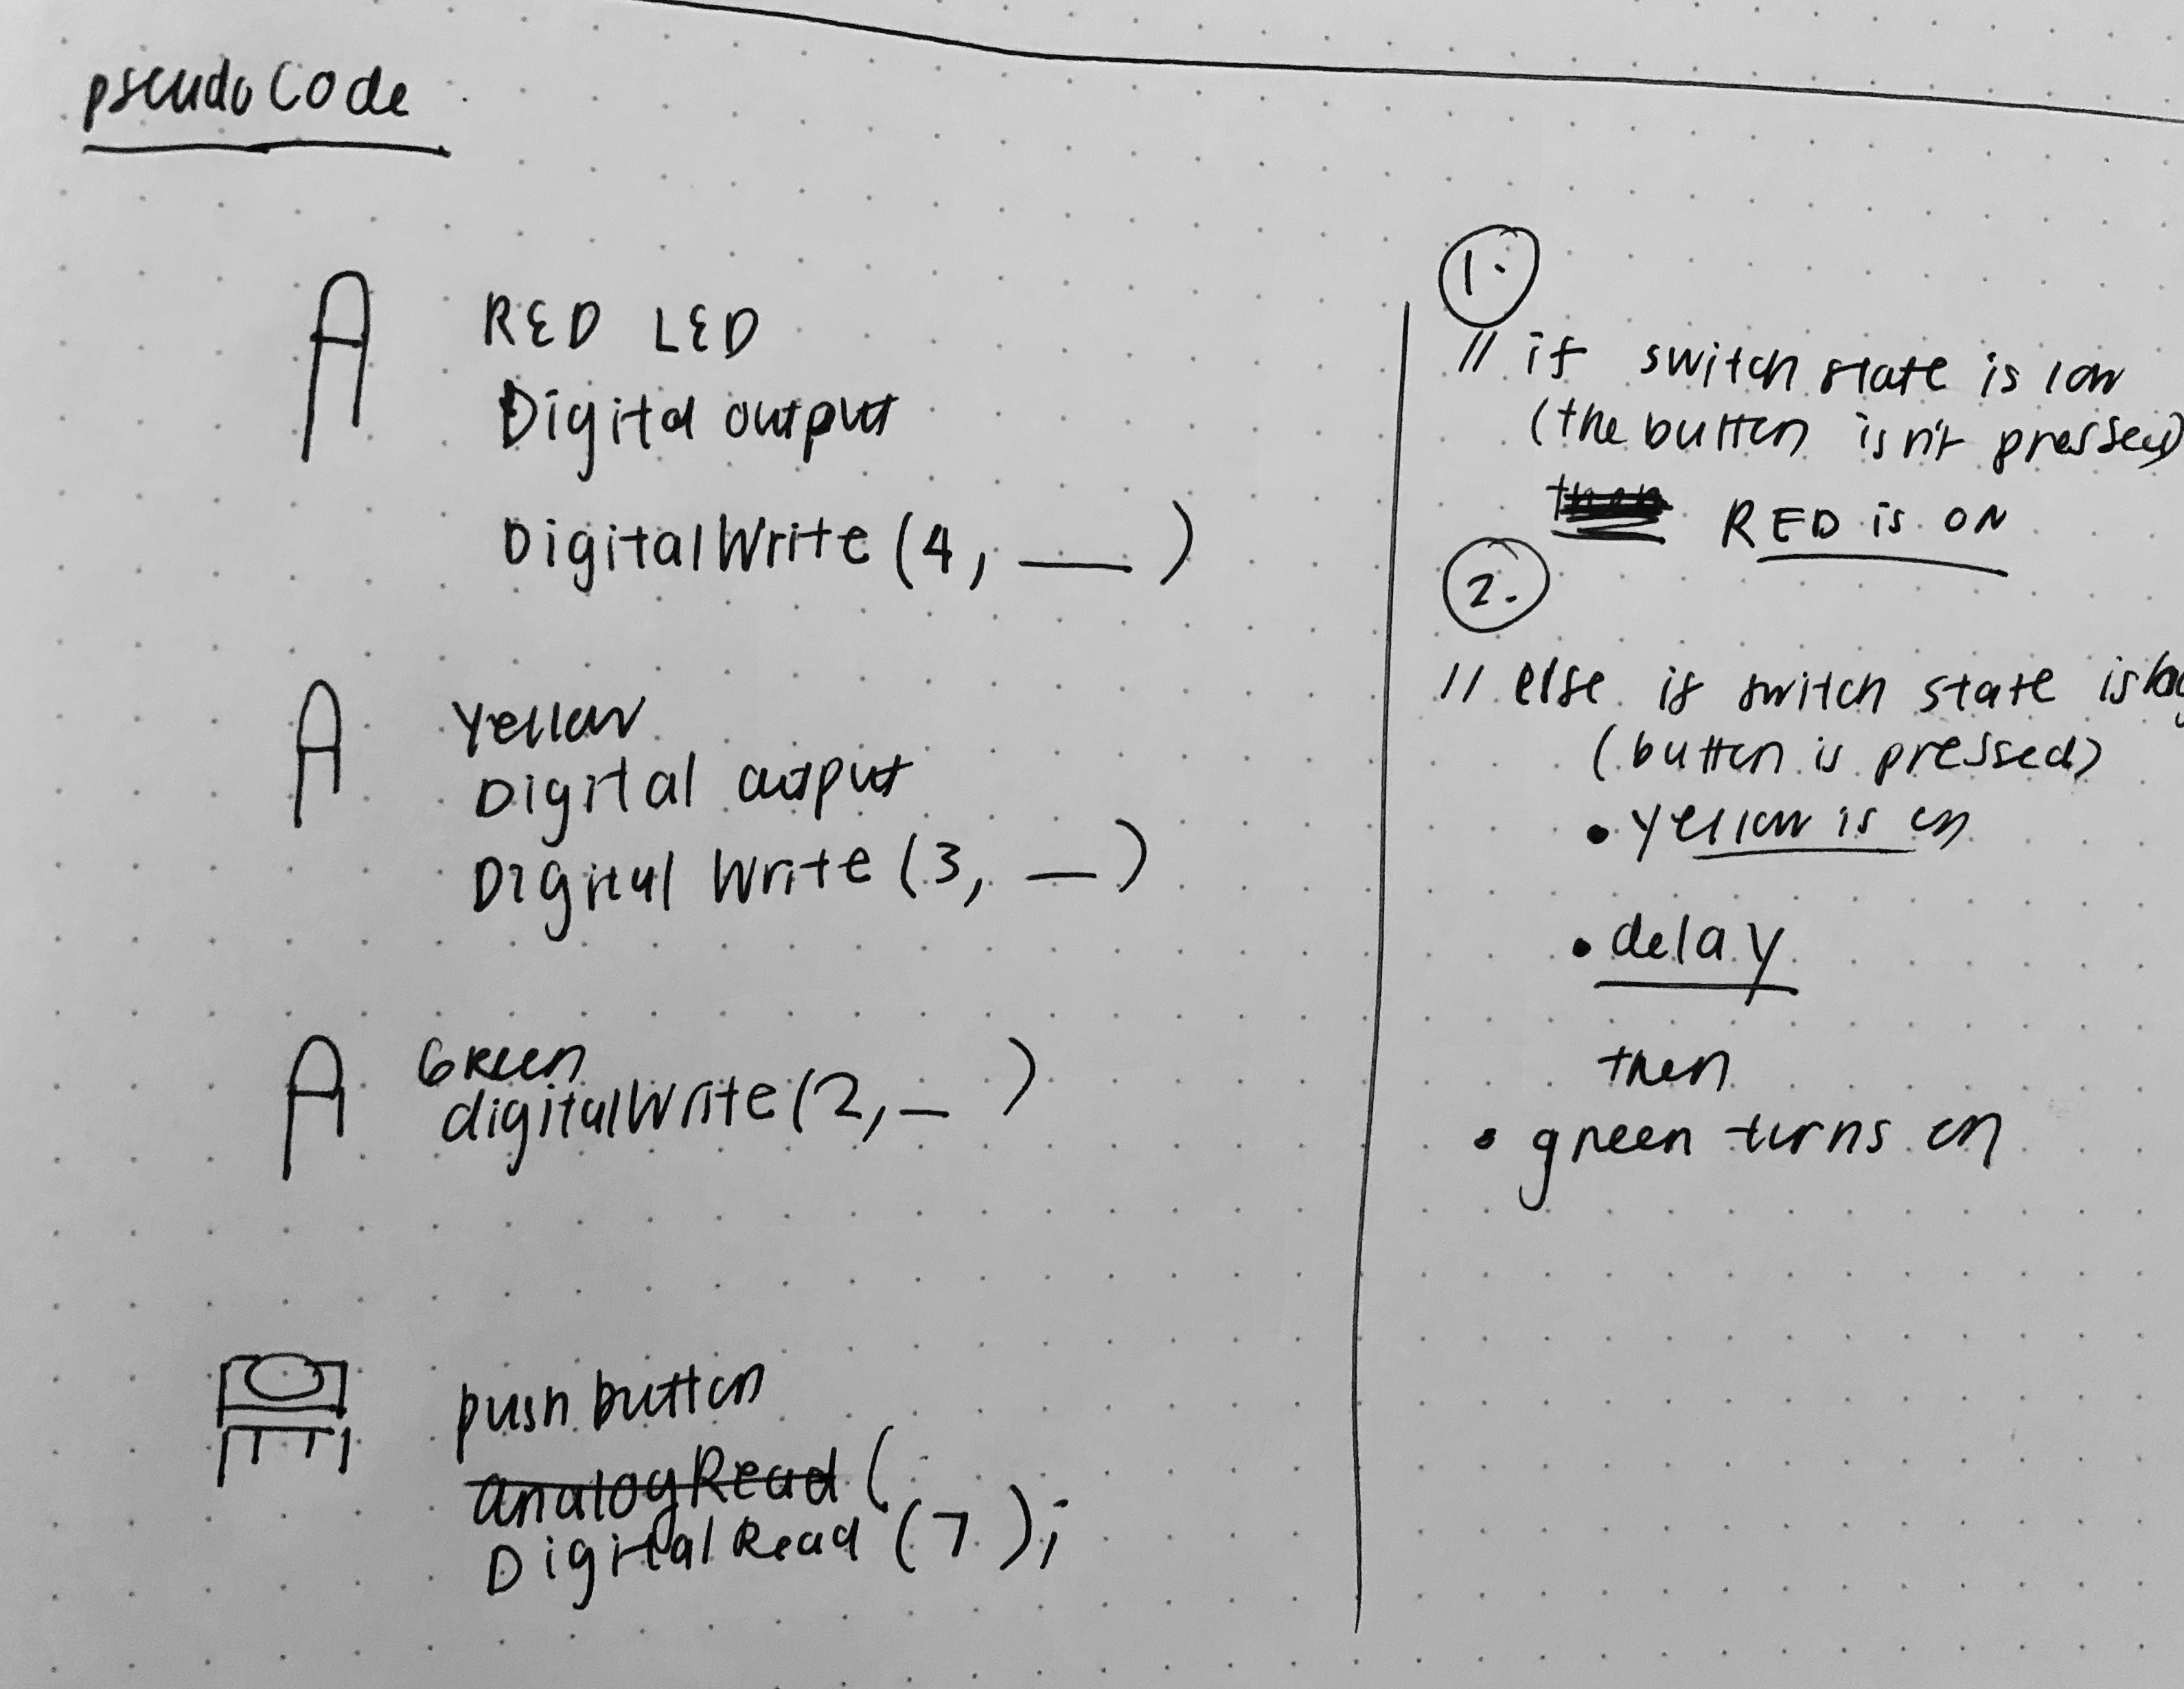 pseudo Code
RED LED
Digital output
DigitalWrite (4, ___ )
Yellow
Digital output
Digital Write (3, __ )
GReen
digitalWrite (2, _ )
push button
analogRead (
DigitalRead (7);
1.
// if switch state is low
(the button isn't pressed)
then RED is ON
2.
// else if switch state is
(button is pressed)
• yellow is on
• delay
then
• green turns on